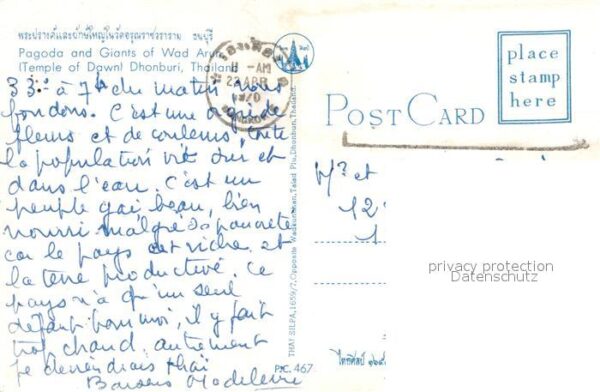 พระปรางค์และยักษ์ใหญ่ในวัดอรุณราชวราราม ธนบุรี
Pagoda and Giants of Wad Arun
(Temple of Dawn) Dhonburi, Thailand
33° à 7h du matin nous
fondons. C'est une
fleurs et de couleurs, toute
la population vit sur et
dans l'eau. C'est un
peuple gai, beau, bien
nourri malgré sa pauvreté
car le pays est riche et
la terre productive. Ce
pays n'a qu'un seul
défaut pour moi, il y fait
trop chaud, autrement
je deviendrais thaï
Baisers Madeleine
11 -AM
22 APR
POST CARD
place
stamp
here
M. et
12
1
privacy protection
Datenschutz
THAI SILPA, 1659/7, Opposite Thailand.
P.C. 467
ไทยศิลป์